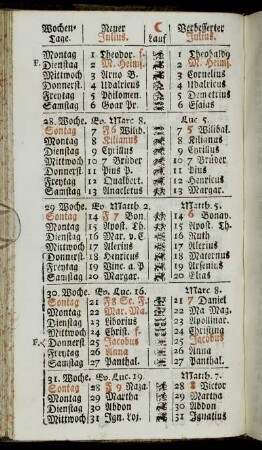 Wochen- Neuer ☾ Verbesserter
Tage. Julius. Lauf Julius.
Montag 1 Theodor. 1 Theobald
F. Dienstag 2 M. Heims. 2 M. Heims.
Mittwoch 3 Arno B. 3 Cornelius
Donnerst. 4 Udalricus 4 Udalricus
Freytag 5 Philomen. 5 Demetrius
Samstag 6 Goar Pr. 6 Esaias
28. Woche. Ev. Marc 8. Luc 5.
Sontag 7 F 6 Wilib. 7 5 Wilibal.
Montag 8 Kilianus 8 Kilianus
Dienstag 9 Cyrillus 9 Cyrillus
Mittwoch 10 7 Brüder 10 7 Brüder.
Donnerst. 11 Pius P. 11 Pius
Freytag 12 Gualbert. 12 Henricus
Samstag 13 Anacletus 13 Margar.
29. Woche. Ev. Matth. 2. Matth. 5.
Sontag 14 F 7 Bon. 14 6 Bonav.
Montag 15 Apost. Th. 15 Apost. Th.
Dienstag 16 Mar. v. C 16 Ruth
Mittwoch 17 Alexius 17 Alexius
Donnerst. 18 Henricus 18 Maternus
Freytag 19 Vinc. a. P 19 Arsenius
Samstag 20 Margar. 20 Elias
30. Woche. Ev. Luc. 16. Marc 8.
Sontag 21 F 8 Sc. F. 21 7 Daniel
Montag 22 Mar. Ma. 22 Ma. Mag.
Dienstag 23 Liborius 23 Apollinar.
Mittwoch 24 Christ. 24 Christina
F. Donnerst. 25 Jacobus 25 Jacobus
Freytag 26 Anna 26 Anna
Samstag 27 Panthal. 27 Panthal.
31. Woche. Ev. Luc. 19. Matth. 7.
Sontag 28 F 9 Naza. 28 8 Victor
Montag 29 Martha 29 Martha
Dienstag 30 Abdon 30 Abdon
Mittwoch 31 Ign. Loj. 31 Ignatius